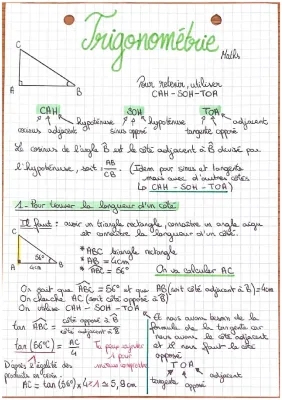 Trigonométrie
Maths
C
A
B
Pour retenir, utiliser
CAH - SOH - TOA
CAH SOH TOA
hypoténuse hypoténuse adjacent
cosinus adjacent sinus opposé tangente opposé
Le cosinus de l'angle B est le côté adjacent à B divisé par
l'hypoténuse, soit : AB/CB. (Idem pour sinus et tangente
mais avec d'autres côtés
↳ CAH - SOH - TOA)
1 - Pour trouver la longueur d'un côté
Il faut : avoir un triangle rectangle, connaître un angle aigu
et connaître la longueur d'un côté.
C
A
B
56°
4cm
* ABC triangle rectangle
* AB = 4cm
* ABC = 56°
On va calculer AC
On sait que ABC = 56° et que AB (soit côté adjacent à B) = 4cm
On cherche AC (soit côté opposé à B)
On utilise CAH - SOH - TOA
tan ABC = côté opposé à B / côté adjacent à B
tan (56°) = AC / 4
1
D'après l'égalité des
produits en croix.
AC = tan (56°) × 4 ÷ 1 ≈ 5,9 cm
Tu peux ajouter
1 pour
mieux comprendre
Et nous avons besoin de la
formule de la tangente car
nous avons le côté adjacent
et il nous faut le côté
opposé
TOA
tangente opposé adjacent